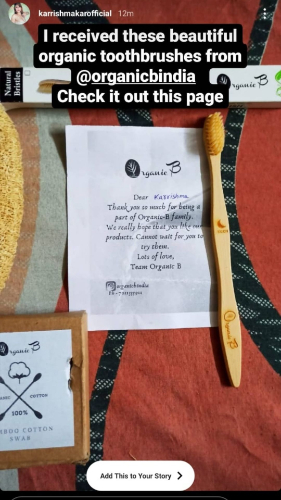 karrishmakarofficial 12m
I received these beautiful
organic toothbrushes from
@organicbindia
Check it out this page
Natural
Bristles
Organic B
Organic B
Dear Karrishma
Thank you so much for being a
part of Organic-B family.
We really hope that you like our
products. Cannot wait for you to
try them.
Lots of love,
Team Organic B
organicbindia
Organic B
COTTON
100%
COTTON
SWAB
Add This to Your Story >